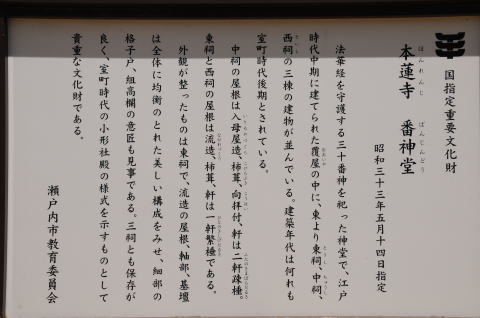 国指定重要文化財
本蓮寺 番神堂
ほんれんじ ばんじんどう
昭和三十三年五月十四日指定
法華経を守護する三十番神を祀った神堂で、江戸
時代中期に建てられた覆屋の中に、東より東祠、中祠、
西祠の三棟の建物が並んでいる。建築年代は何れも
室町時代後期とされている。
中祠の屋根は入母屋造、杮葺、向拝付、軒は二軒疎棰。
東祠と西祠の屋根は流造、杮葺、軒は一軒繁棰である。
外観が整ったものは東祠で、流造の屋根、軸部、基壇
は全体に均衡のとれた美しい構成をみせ、細部の
格子戸、組高欄の意匠も見事である。三祠とも保存が
良く、室町時代の小形社殿の様式を示すものとして
貴重な文化財である。
瀬戸内市教育委員会